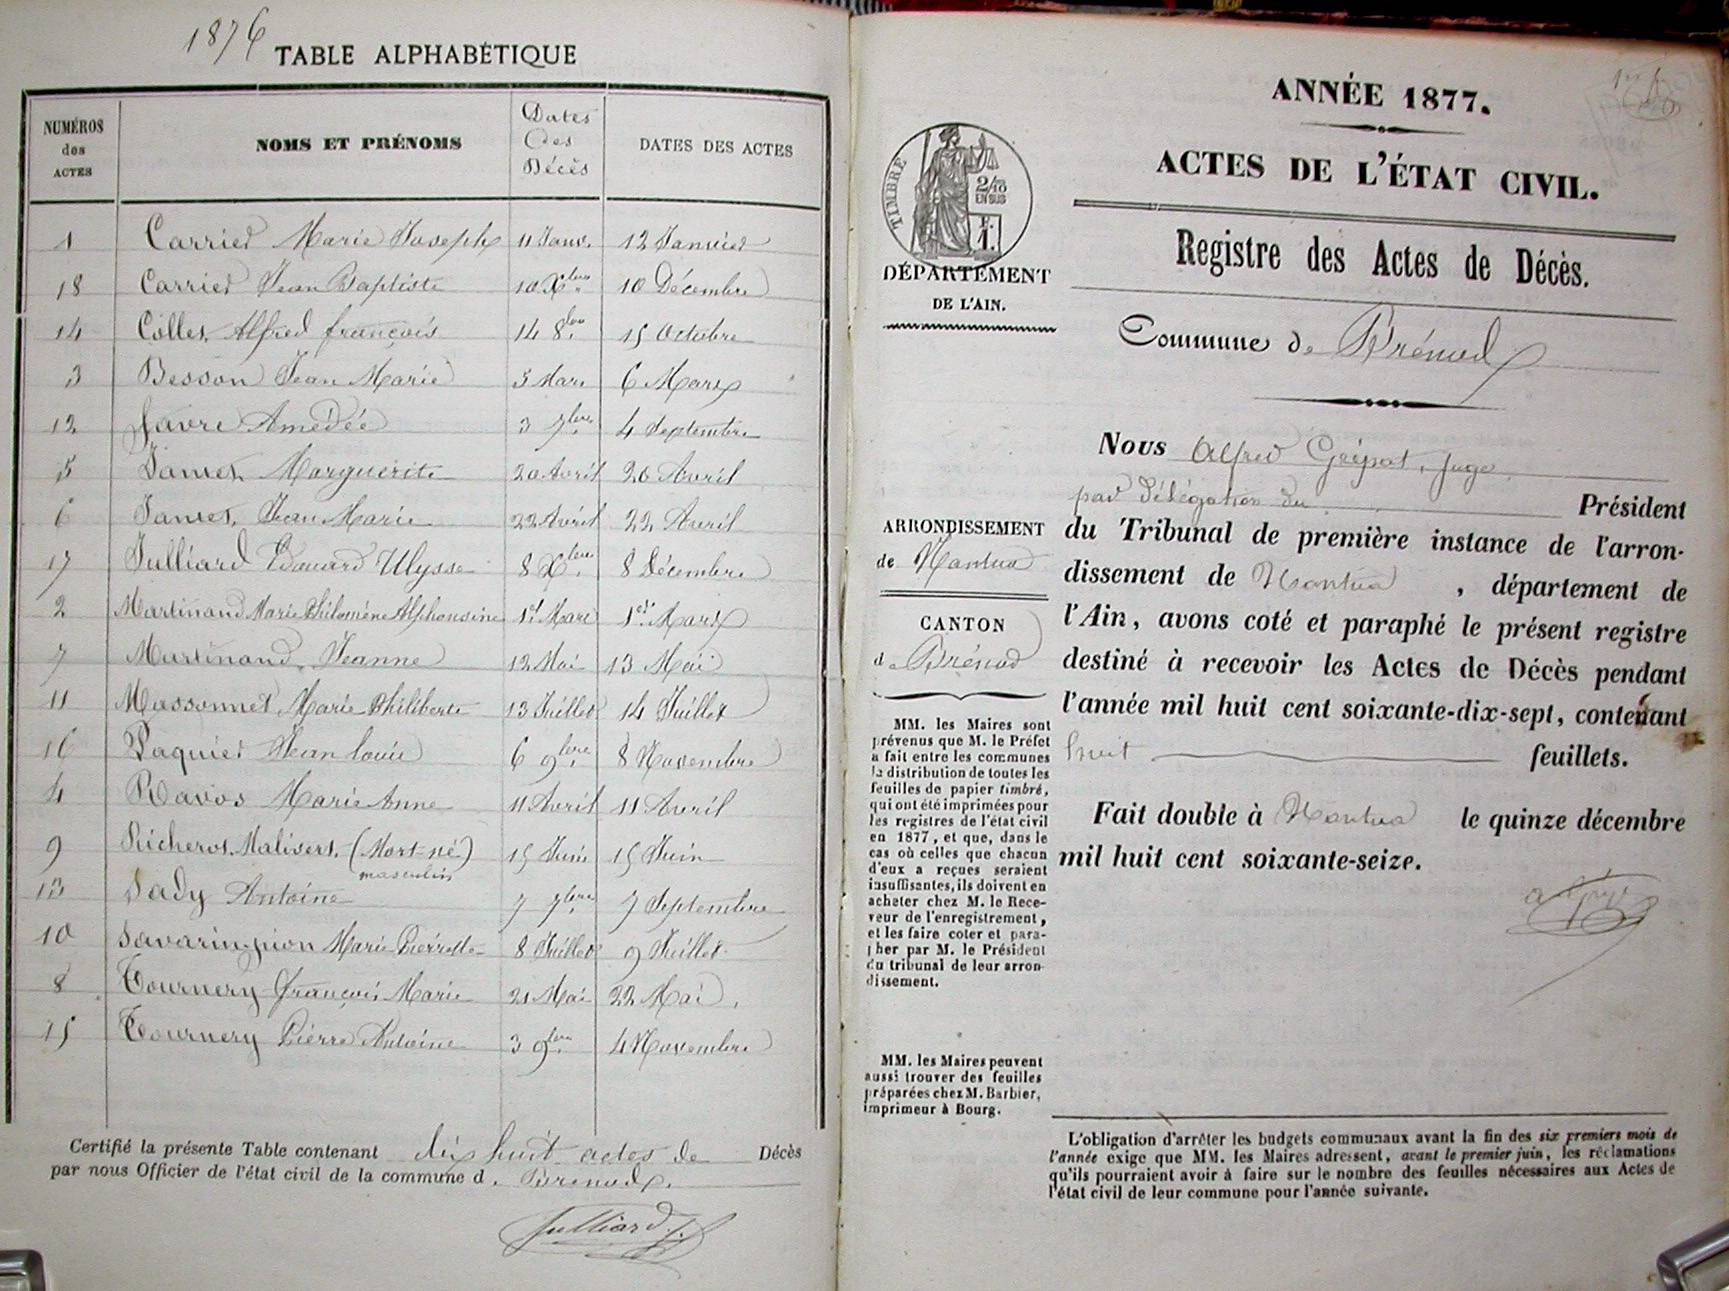 1876
TABLE ALPHABÉTIQUE
NUMÉROS des ACTES | NOMS ET PRÉNOMS | Dates des Décès | DATES DES ACTES
1 Carrier Marie Joseph 11 Janv. 12 Janvier
18 Carrier Jean Baptiste 10 Xbre 10 Décembre
14 Collet Alfred françois 14 8bre 15 Octobre
3 Besson Jean Marie 5 Mars 6 Mars
12 favre Amédée 3 7bre 4 Septembre
5 Jantet Marguerite 20 Avril 20 Avril
6 Jantet Jean Marie 22 Avril 22 Avril
17 Julliard Edouard Ulysse 8 Xbre 8 Décembre
2 Martinand Marie Philomène Alphonsine 1er Mars 1er Mars
7 Martinand Jeanne 12 Mai 13 Mai
11 Massonnet Marie Philiberte 13 Juillet 14 Juillet
16 Paquier Jean louis 6 9bre 8 Novembre
4 Ravos Marie Anne 11 Avril 11 Avril
9 Richerot Malivert (Mort-né) 15 Juin 15 Juin
masculin
13 Sady Antoine 7 7bre 7 Septembre
10 Savarin pion Marie Pierrette 8 Juillet 9 Juillet
8 Tournery françois Marie 21 Mai 22 Mai
15 Tournery Pierre Antoine 3 9bre 4 Novembre
Certifié la présente Table contenant dix huit actes de Décès
par nous Officier de l'état civil de la commune d. Brenod.
Julliard
ANNÉE 1877.
ACTES DE L'ÉTAT CIVIL.
TIMBRE
2/10
EN SUS
F
1.
DÉPARTEMENT
DE L'AIN.
Registre des Actes de Décès.
Commune de Brénod
Nous Alfred Grépat, Juge
par délégation du Président
du Tribunal de première instance de l'arron-
dissement de Nantua , département de
l'Ain, avons coté et paraphé le présent registre
destiné à recevoir les Actes de Décès pendant
l'année mil huit cent soixante-dix-sept, contenant
huit feuillets.
Fait double à Nantua le quinze décembre
mil huit cent soixante-seize.
ARRONDISSEMENT
de Nantua
CANTON
de Brénod
MM. les Maires sont
prévenus que M. le Préfet
a fait entre les communes
la distribution de toutes les
feuilles de papier timbré,
qui ont été imprimées pour
les registres de l'état civil
en 1877, et que, dans le
cas où celles que chacun
d'eux a reçues seraient
insuffisantes, ils doivent en
acheter chez M. le Rece-
veur de l'enregistrement,
et les faire coter et para-
pher par M. le Président
du tribunal de leur arron-
dissement.
MM. les Maires peuvent
aussi trouver des feuilles
préparées chez M. Barbier,
imprimeur à Bourg.
L'obligation d'arrêter les budgets communaux avant la fin des six premiers mois de
l'année exige que MM. les Maires adressent, avant le premier juin, les réclamations
qu'ils pourraient avoir à faire sur le nombre des feuilles nécessaires aux Actes de
l'état civil de leur commune pour l'année suivante.